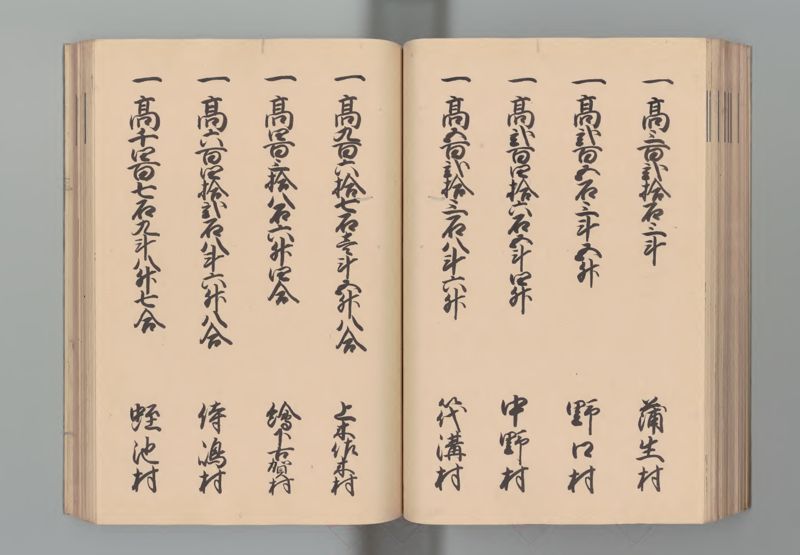 一 高三百弐拾石三斗 蒲生村
一 高弐百五石三斗五升 野口村
一 高弐百四拾六石五斗四升 中野村
一 高五百弐拾三石八斗六升 筏溝村
一 高九百六拾七石壱斗五升八合 上木佐木村
一 高四百三拾八石六升四合 繪下古賀村
一 高六百四拾弐石八斗六升八合 侍嶋村
一 高千四百七石九斗八升七合 蛭池村